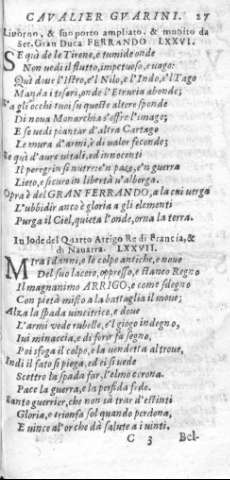 CAVALIER GVARINI. 27
Liuorno, & suo porto ampliato, & munito da
Ser. Gran Duca FERRANDO LXXVI.
SE quà de le Tirene, e tumide onde
Non uedi il flutto, impetuoso, e uago:
Quì doue l'Istro, e'l Nilo, e l'Indo, e'l Tago
Manda i tesori, onde l'Etruria abonde;
E'a gl'occhi tuoi su queste altere sponde
Di noua Monarchia s'offre l'imago;
E se uedi piantar d'altra Cartago
Le mura d'armi, e di valor seconde;
Se quà d'aure uitali, ed innocenti
Il peregrin si nutre e'n pace, e'n guerra
Lieto, e sicuro in libertà n'alberga.
Opra è del GRAN FERRANDO, a la cui verga
L'ubbidir anto è gloria a gli elementi
Purga il Ciel, quieta l'onde, orna la terra.
In lode del Quarto Arrigo Re di Francia, &
di Nauarra. LXXVII.
MIra i danni, e le colpe antiche, e noue
Del suo lacero, oppresso, e stanco Regno
Il magnanimo ARRIGO, e come sdegno
Con pietà misto a la battaglia il moue;
Alza la spada uincitrice, e doue
L'armi vede rubelle, e'l giogo indegno,
Iui minaccia, e di ferir fa segno,
Poi sfoga il colpo, e la vendetta altroue,
Indi il fato si piega, ed ei si uede
Scettro la spada far, l'elmo corona.
Pace la guerra, e la perfida fede.
Santo guerrier, che non sà trar d'estinti
Gloria, e trionfa sol quando perdona,
E uince al'or che dà salute a i uinti.
C 3 Bel-